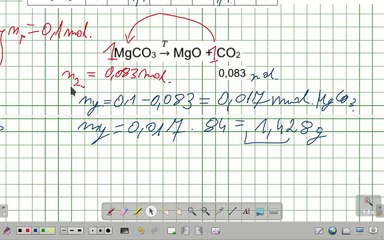 n₁ = 0,1 mol.
1MgCO₃ →ᵀ MgO + 1CO₂
n₂ = 0,083 mol. 0,083 mol.
ny = 0,1 - 0,083 = 0,017 mol. MgCO₃
my = 0,017 . 84 = 1,428g